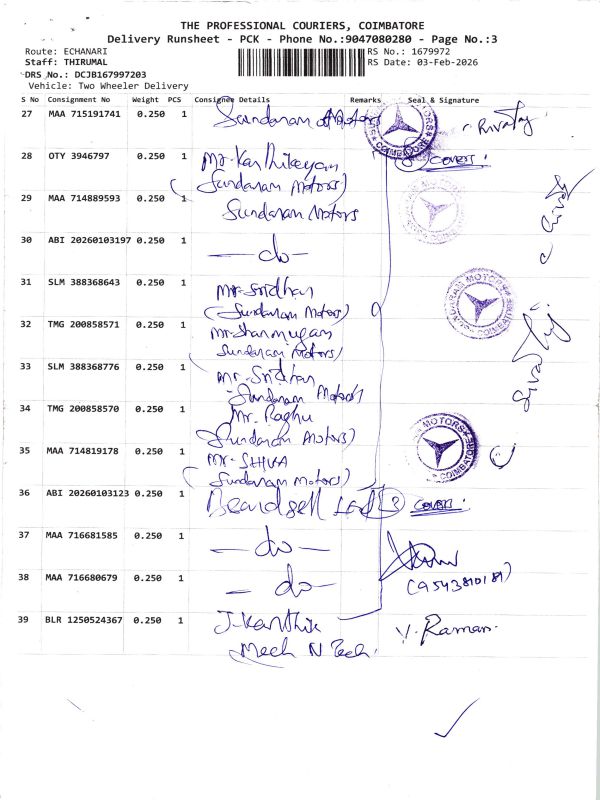 THE PROFESSIONAL COURIERS, COIMBATORE
Delivery Runsheet - PCK - Phone No.:9047080280 - Page No.:3
Route: ECHANARI
RS No.: 1679972
Staff: THIRUMAL
RS Date: 03-Feb-2026
DRS No.: DCJB167997203
Vehicle: Two Wheeler Delivery
S No Consignment No Weight PCS Consignee Details Remarks Seal & Signature
27 MAA 715191741 0.250 1 Sundaram Motors
28 OTY 3946797 0.250 1 Mr. Karthikeyan
(Sundaram Motors)
29 MAA 714889593 0.250 1 Sundaram Motors
30 ABI 20260103197 0.250 1 — do —
31 SLM 388368643 0.250 1 Mr. Sridhar
(Sundaram Motors) 9
32 TMG 200858571 0.250 1 Mr. Shanmugam
Sundaram Motors)
33 SLM 388368776 0.250 1 Mr. Sridhar
Sundaram Motors
34 TMG 200858570 0.250 1 Mr. Raghu
(Sundaram Motors)
35 MAA 714819178 0.250 1 Mr. SHIVA
(Sundaram Motors)
36 ABI 20260103123 0.250 1 Beardsell Ltd 3 covers.
37 MAA 716681585 0.250 1 — do —
38 MAA 716680679 0.250 1 — do —
(9543810181)
39 BLR 1250524367 0.250 1 J. Karthik V. Raman.
Mech N Tech.
SUNDARAM MOTORS COIMBATORE